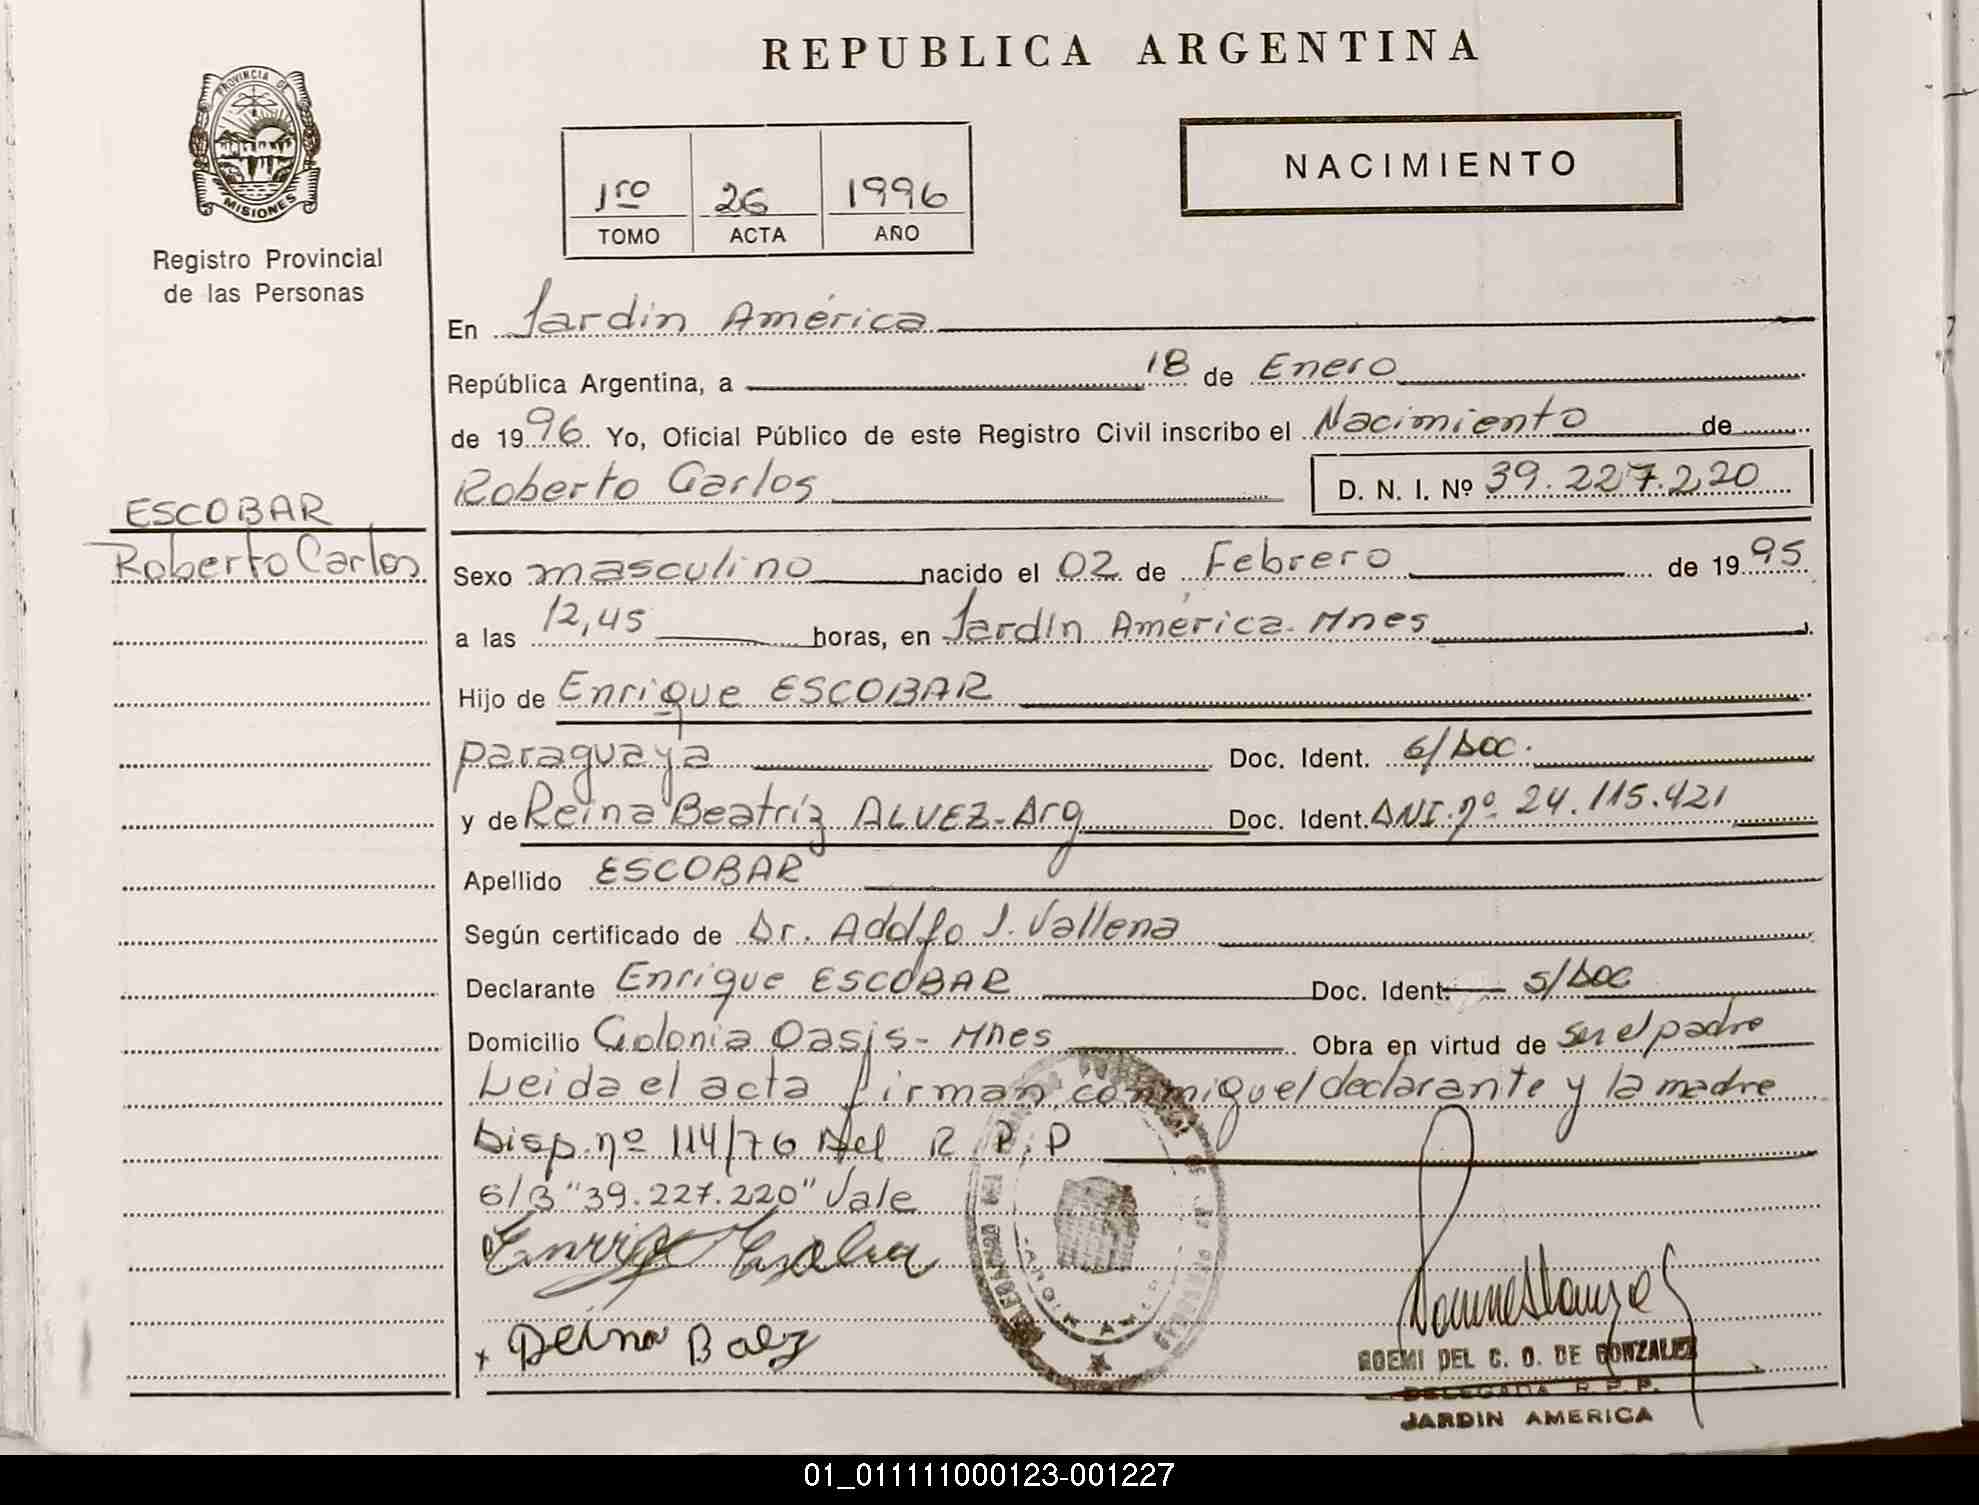 REPUBLICA ARGENTINA
PROVINCIA DE
MISIONES
Registro Provincial
de las Personas
1ro 26 1996
TOMO ACTA AÑO
NACIMIENTO
En Jardin América
República Argentina, a 18 de Enero
de 1996 Yo, Oficial Público de este Registro Civil inscribo el Nacimiento de
Roberto Carlos D. N. I. Nº 39.227.220
ESCOBAR
Roberto Carlos
Sexo masculino nacido el 02 de Febrero de 1995
a las 12,45 horas, en Jardín América-Mnes
Hijo de Enrique ESCOBAR
paraguaya Doc. Ident. s/Doc.
y de Reina Beatríz ALVEZ-Arg Doc. Ident. DNI.nº 24.115.421
Apellido ESCOBAR
Según certificado de Dr. Adolfo J. Vallena
Declarante Enrique ESCOBAR Doc. Ident. s/Doc
Domicilio Colonia Oasis- Mnes Obra en virtud de ser el padre
Leida el acta firman conmigo el declarante y la madre
Disp.nº 114/76 del R P.P
S/B "39.227.220" Vale
Reina Baez
NOEMI DEL C. O. DE GONZALEZ
DELEGADA R.P.P.
JARDIN AMERICA
01_011111000123-001227